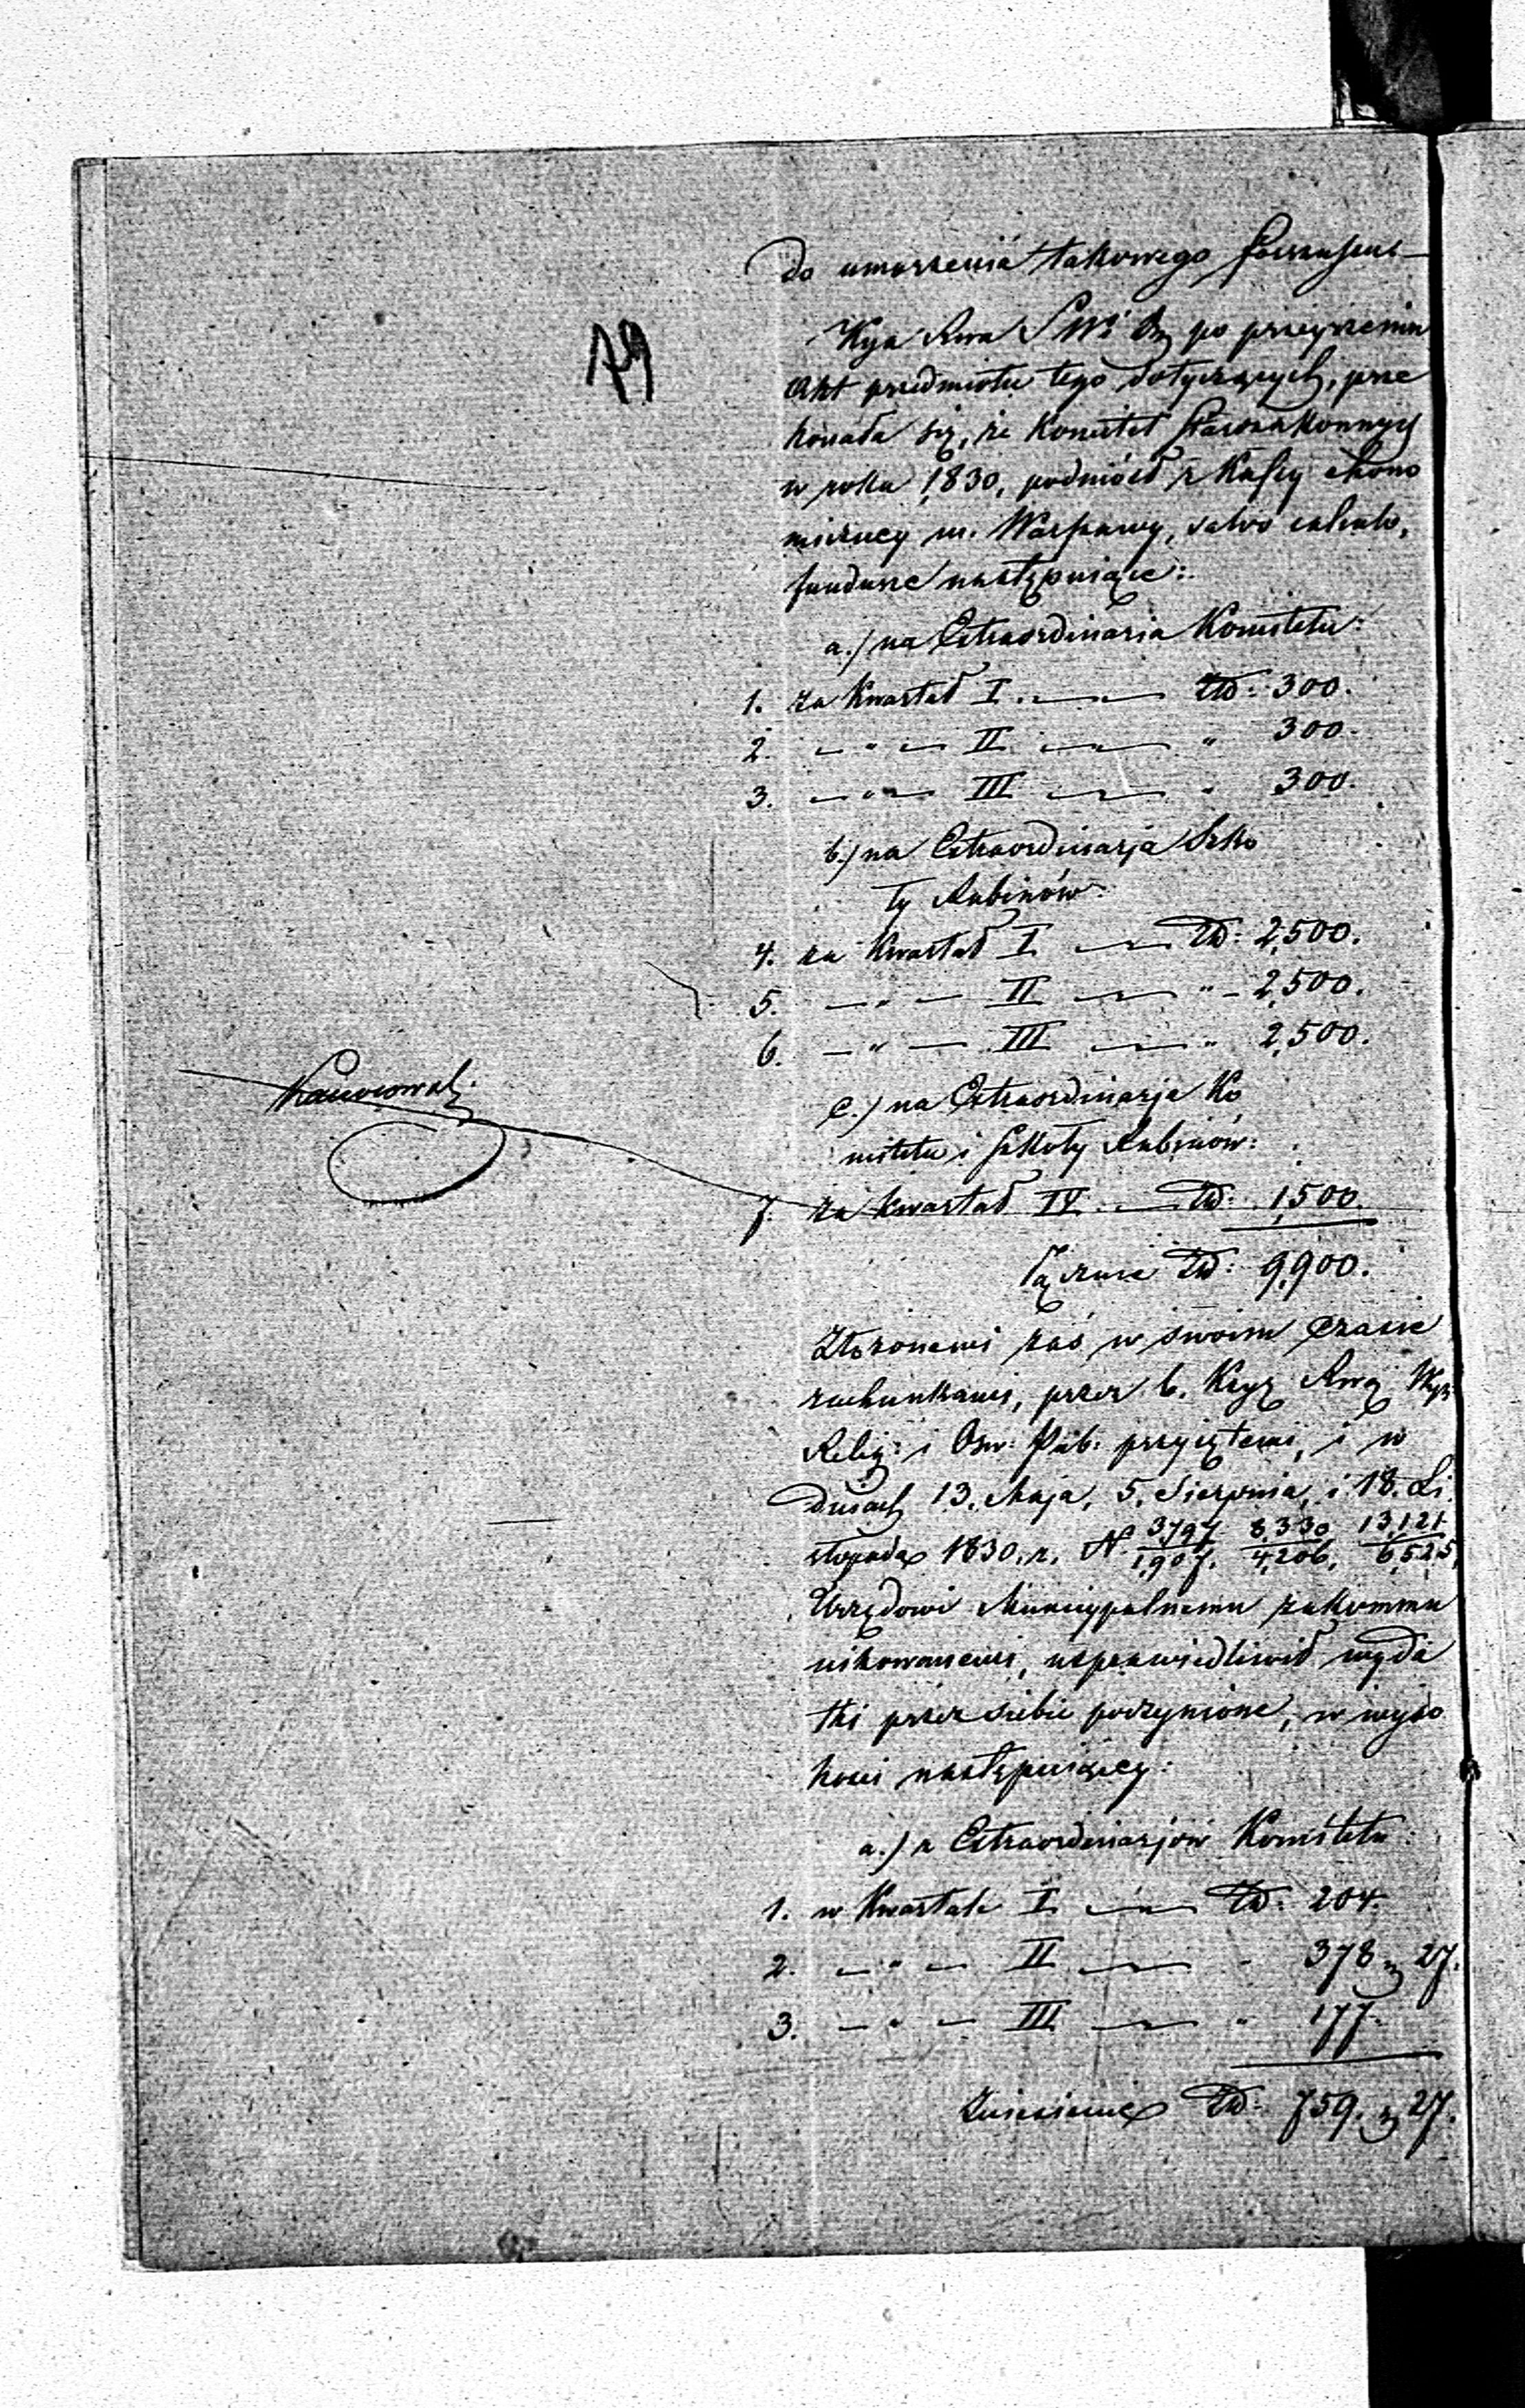 79
do umorzenia takowego
Kcya Rwa SWi po przejrzeniu
Akt przedmiotu tego dotyczących, prze
konała się, że Komitet Starozakonnych
w roku 1830, podniósł z Kassy ekono
miczney m. Warszawy, salvo calculo,
fundusze następuiące:
a.) na Extraordinaria Komitetu:
1. za Kwartał I. — Złp: 300.
2. — " — II — " 300.
3. — " — III — " 300.
b.) na Extraordinarja Szko
ły Rabinów:
4. za Kwartał I — Złp: 2,500.
5. — " — II — " 2,500.
6. — " — III — " 2,500.
c.) na Extraordinarja Ko
mitetu i Szkoły Rabinów:
7. za kwartał IV. — Złp: 1,500.
Łącznie Złp: 9,900.
Złożonemi zaś w swoim czasie
rachunkami, przez b. Kcyą Rwą Wyz:
Relig: i Osw: Pub: przyiętemi, i w
dniach 13. Maja, 5. Sierpnia, i 18. Li
stopada 1830. r. N 3797/1,907. 8,330/4,206. 13,121/6,525.
Urzędowi Municypalnemu zakommu
nikowanemi, usprawiedliwił wyda
tki przez siebie poczynione, w wyso
kości następuiącey:
a.) z Extraordinarjów Komitetu:
1. w Kwartale I — Złp: 204.
2. — " — II — " 378 gr 27.
3. — " — III — " 177.
Złp: 759. gr 27.